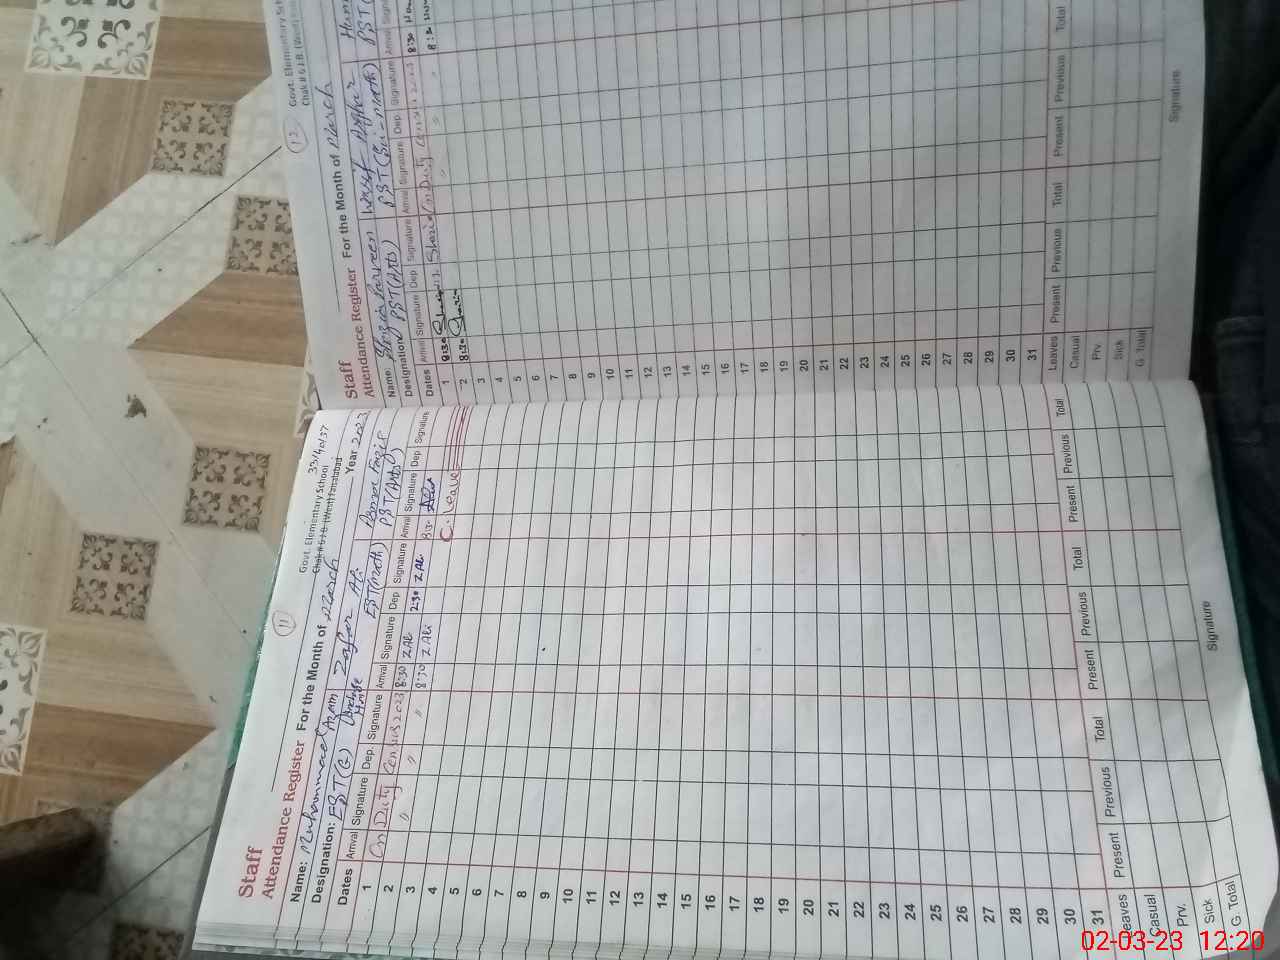 Staff
Attendance Register For the Month of March Year 2023
Govt. Elementary School 33/40/37
Chak # 61-B (West) Faisalabad
11
Name: Muhammad Azam Zafar Ali
Designation: EST (G) EST (Math) PST (Arts)
Dates Arrival Signature Dep. Signature Arrival Signature Dep Signature Arrival Signature Dep Signature
1 On Duty Census 2023 8:30 Z Ali 2:30 Z Ali 8:3-
2 " " " 8:30 Z Ali C. Leave
3
4
5
6
7
8
9
10
11
12
13
14
15
16
17
18
19
20
21
22
23
24
25
26
27
28
29
30
31
Leaves Present Previous Total Present Previous Total Present Previous Total
Casual
Prv.
Sick
G. Total
Signature
12
Govt. Elementary Sch
Staff
Attendance Register For the Month of March
Name: Shazia Parveen
Designation PST (Arts) PST (Sci-Math) PST (
Dates Arrival Signature Dep Signature Arrival Signature Dep. Signature Arrival
1 8:30 Shazia On Duty Census 2023 8:30
2 8:30 Shazia " " " 8:30
3
4
5
6
7
8
9
10
11
12
13
14
15
16
17
18
19
20
21
22
23
24
25
26
27
28
29
30
31
Leaves Present Previous Total Present Previous Total
Casual
Prv.
Sick
G. Total
Signature
02-03-23 12:20